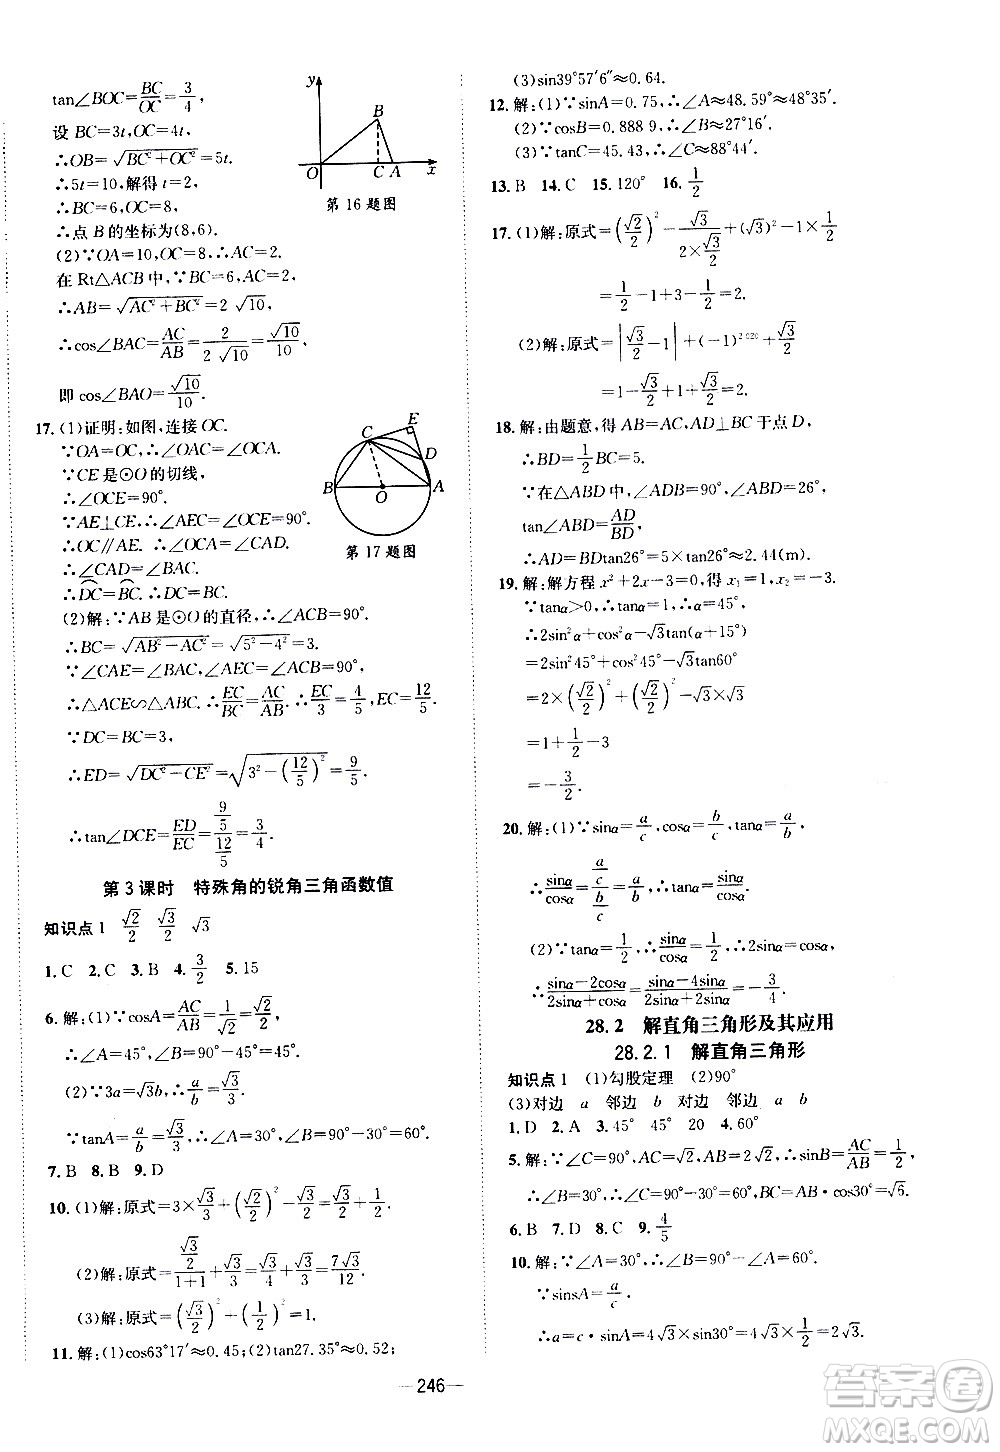 tan∠BOC=BC/OC=3/4,
设 BC=3t,OC=4t,
∴OB=√(BC²+OC²)=5t.
∴5t=10,解得 t=2.
∴BC=6,OC=8.
∴点 B 的坐标为(8,6).
(2)∵OA=10,OC=8,∴AC=2.
在 Rt△ACB 中,∵BC=6,AC=2,
∴AB=√(AC²+BC²)=2√10,
∴cos∠BAC=AC/AB=2/(2√10)=√10/10,
即 cos∠BAO=√10/10.
y
B
O
C A
x
第 16 题图
17.(1)证明:如图,连接 OC.
∵OA=OC,∴∠OAC=∠OCA.
∵CE 是⊙O 的切线,
∴∠OCE=90°.
∵AE⊥CE,∴∠AEC=∠OCE=90°.
∴OC∥AE. ∴∠OCA=∠CAD.
∴∠CAD=∠BAC.
∴DC=BC. ∴DC=BC.
(2)解:∵AB 是⊙O 的直径,∴∠ACB=90°.
∴BC=√(AB²-AC²)=√(5²-4²)=3.
∵∠CAE=∠BAC,∠AEC=∠ACB=90°,
∴△ACE∽△ABC. ∴EC/BC=AC/AB. ∴EC/3=4/5,EC=12/5.
∵DC=BC=3,
∴ED=√(DC²-CE²)=√(3²-(12/5)²)=9/5.
∴tan∠DCE=ED/EC=(9/5)/(12/5)=3/4.
E
C
D
B
O
A
第 17 题图
第 3 课时 特殊角的锐角三角函数值
知识点 1 √2/2 √3/2 √3
1.C 2.C 3.B 4.3/2 5.15
6.解:(1)∵cosA=AC/AB=1/√2=√2/2,
∴∠A=45°,∴∠B=90°-∠A=45°.
(2)∵3a=√3b,∴a/b=√3/3.
∵tanA=a/b=√3/3,∴∠A=30°,∴∠B=60°.
7.B 8.B 9.D
10.(1)解:原式=3×√3/3+(√2/2)²=√3+1/2.
(2)解:原式=(√3/2)/(1+1)+√3/3=√3/4+√3/3=7√3/12.
(3)解:原式=(√3/2)²+(1/2)²=1.
11.解:(1)cos63°17′≈0.45;(2)tan27.35°≈0.52;
(3)sin39°57′6″≈0.64.
12.解:(1)∵sinA=0.75,∴∠A≈48.59°≈48°35′.
(2)∵cosB=0.888 9,∴∠B≈27°16′.
(3)∵tanC=45.43,∴∠C≈88°44′.
13.B 14.C 15.120° 16.1/2
17.(1)解:原式=(√2/2)²-√3/(2×√3/2)+(√3)²-1×1/2
=1/2-1+3-1/2=2.
(2)解:原式=|√3/2-1|+(-1)²⁰²⁰+√3/2
=1-√3/2+1+√3/2=2.
18.解:由题意,得 AB=AC,AD⊥BC于点 D,
∴BD=1/2BC=5.
∵在△ABD 中,∠ADB=90°,∠ABD=26°,
tan∠ABD=AD/BD.
∴AD=BDtan26°=5×tan26°≈2.44(m).
19.解:解方程 x²+2x-3=0,得 x₁=1,x₂=-3.
∵tanα>0,∴tanα=1,∴α=45°.
∴2sin²α+cos²α-√3tan(α+15°)
=2sin²45°+cos²45°-√3tan60°
=2×(√2/2)²+(√2/2)²-√3×√3
=1+1/2-3
=-3/2.
20.解:(1)∵sinα=a/c,cosα=b/c,tanα=a/b,
∴sinα/cosα=(a/c)/(b/c)=a/b,∴tanα=sinα/cosα.
(2)∵tanα=1/2,∴sinα/cosα=1/2,∴2sinα=cosα,
∴(sinα-2cosα)/(2sinα+cosα)=(sinα-4sinα)/(2sinα+2sinα)=-3/4.
28.2 解直角三角形及其应用
28.2.1 解直角三角形
知识点 1 (1)勾股定理 (2)90°
(3)对边 a 邻边 b 对边 邻边 a b
1.D 2.A 3.45° 45° 20 4.60°
5.解:∵∠C=90°,AC=√2,AB=2√2,∴sinB=AC/AB=1/2,
∴∠B=30°,∴∠A=60°,BC=AB·cos30°=√6.
6.B 7.D 8.C 9.4/5
10.解:∵∠A=30°,∴∠B=90°-∠A=60°.
∵sinsA=a/c,
∴a=c·sinA=4√3×1/2=2√3.
246
答案圈
MXQE.COM